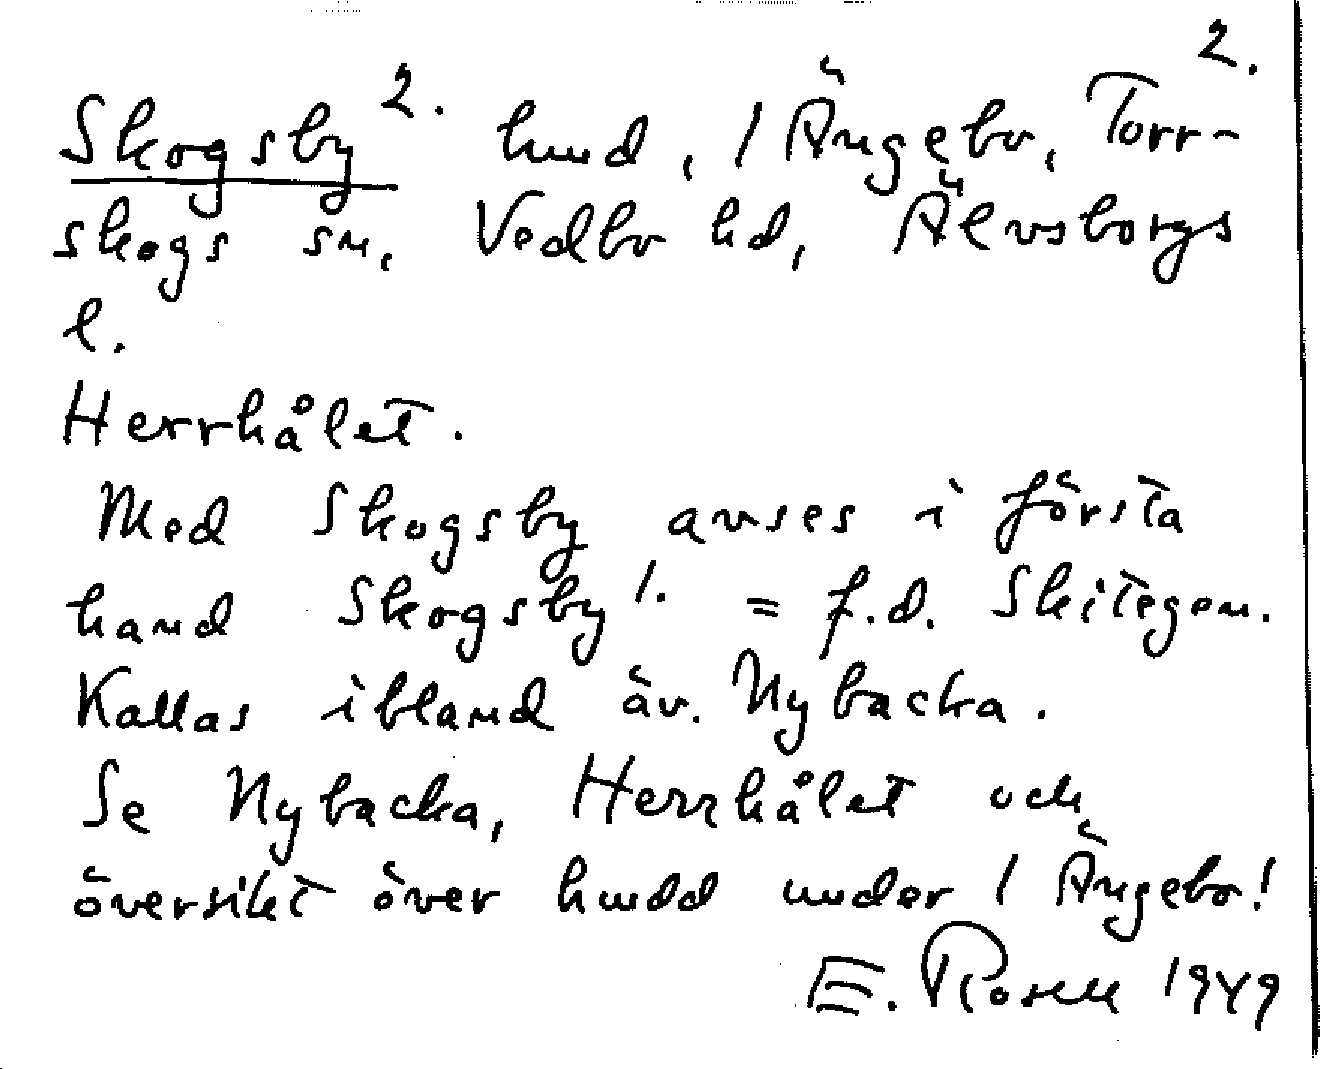 2.
Skogsby 2. hmd, 1 Ängebo, Torr-
skogs sn, Vedbo hd, Älvsborgs
l.
Herrhålet.
Med Skogsby avses i första
hand Skogsby 1. = f.d. Skitegen.
Kallas ibland äv. Nybacka.
Se Nybacka, Herrhålet och
översikt över hmdd under 1 Ängebo!
E. Rosell 1949